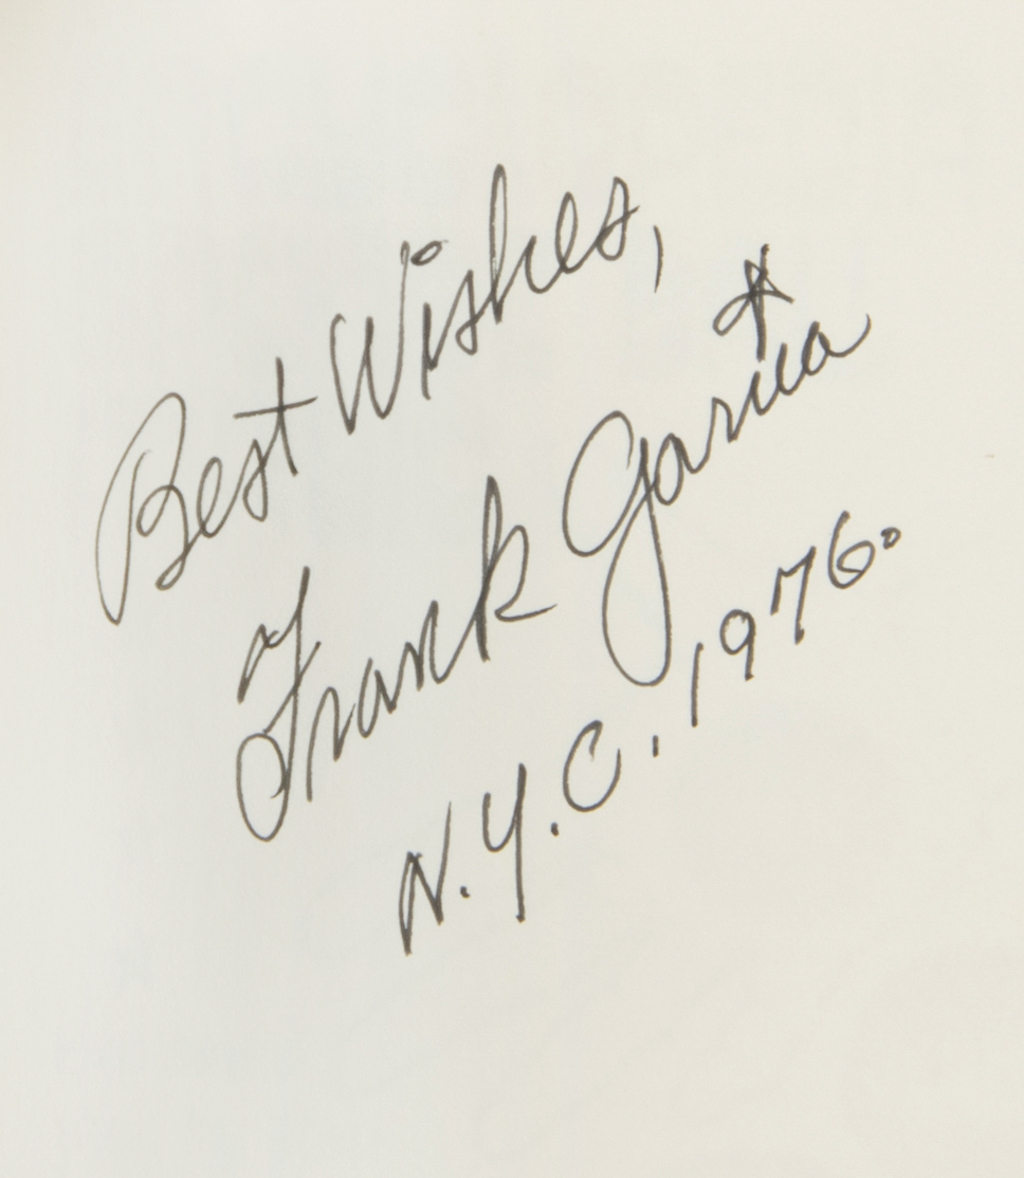 Best Wishes,
Frank Garcia
N.Y.C. 1976.